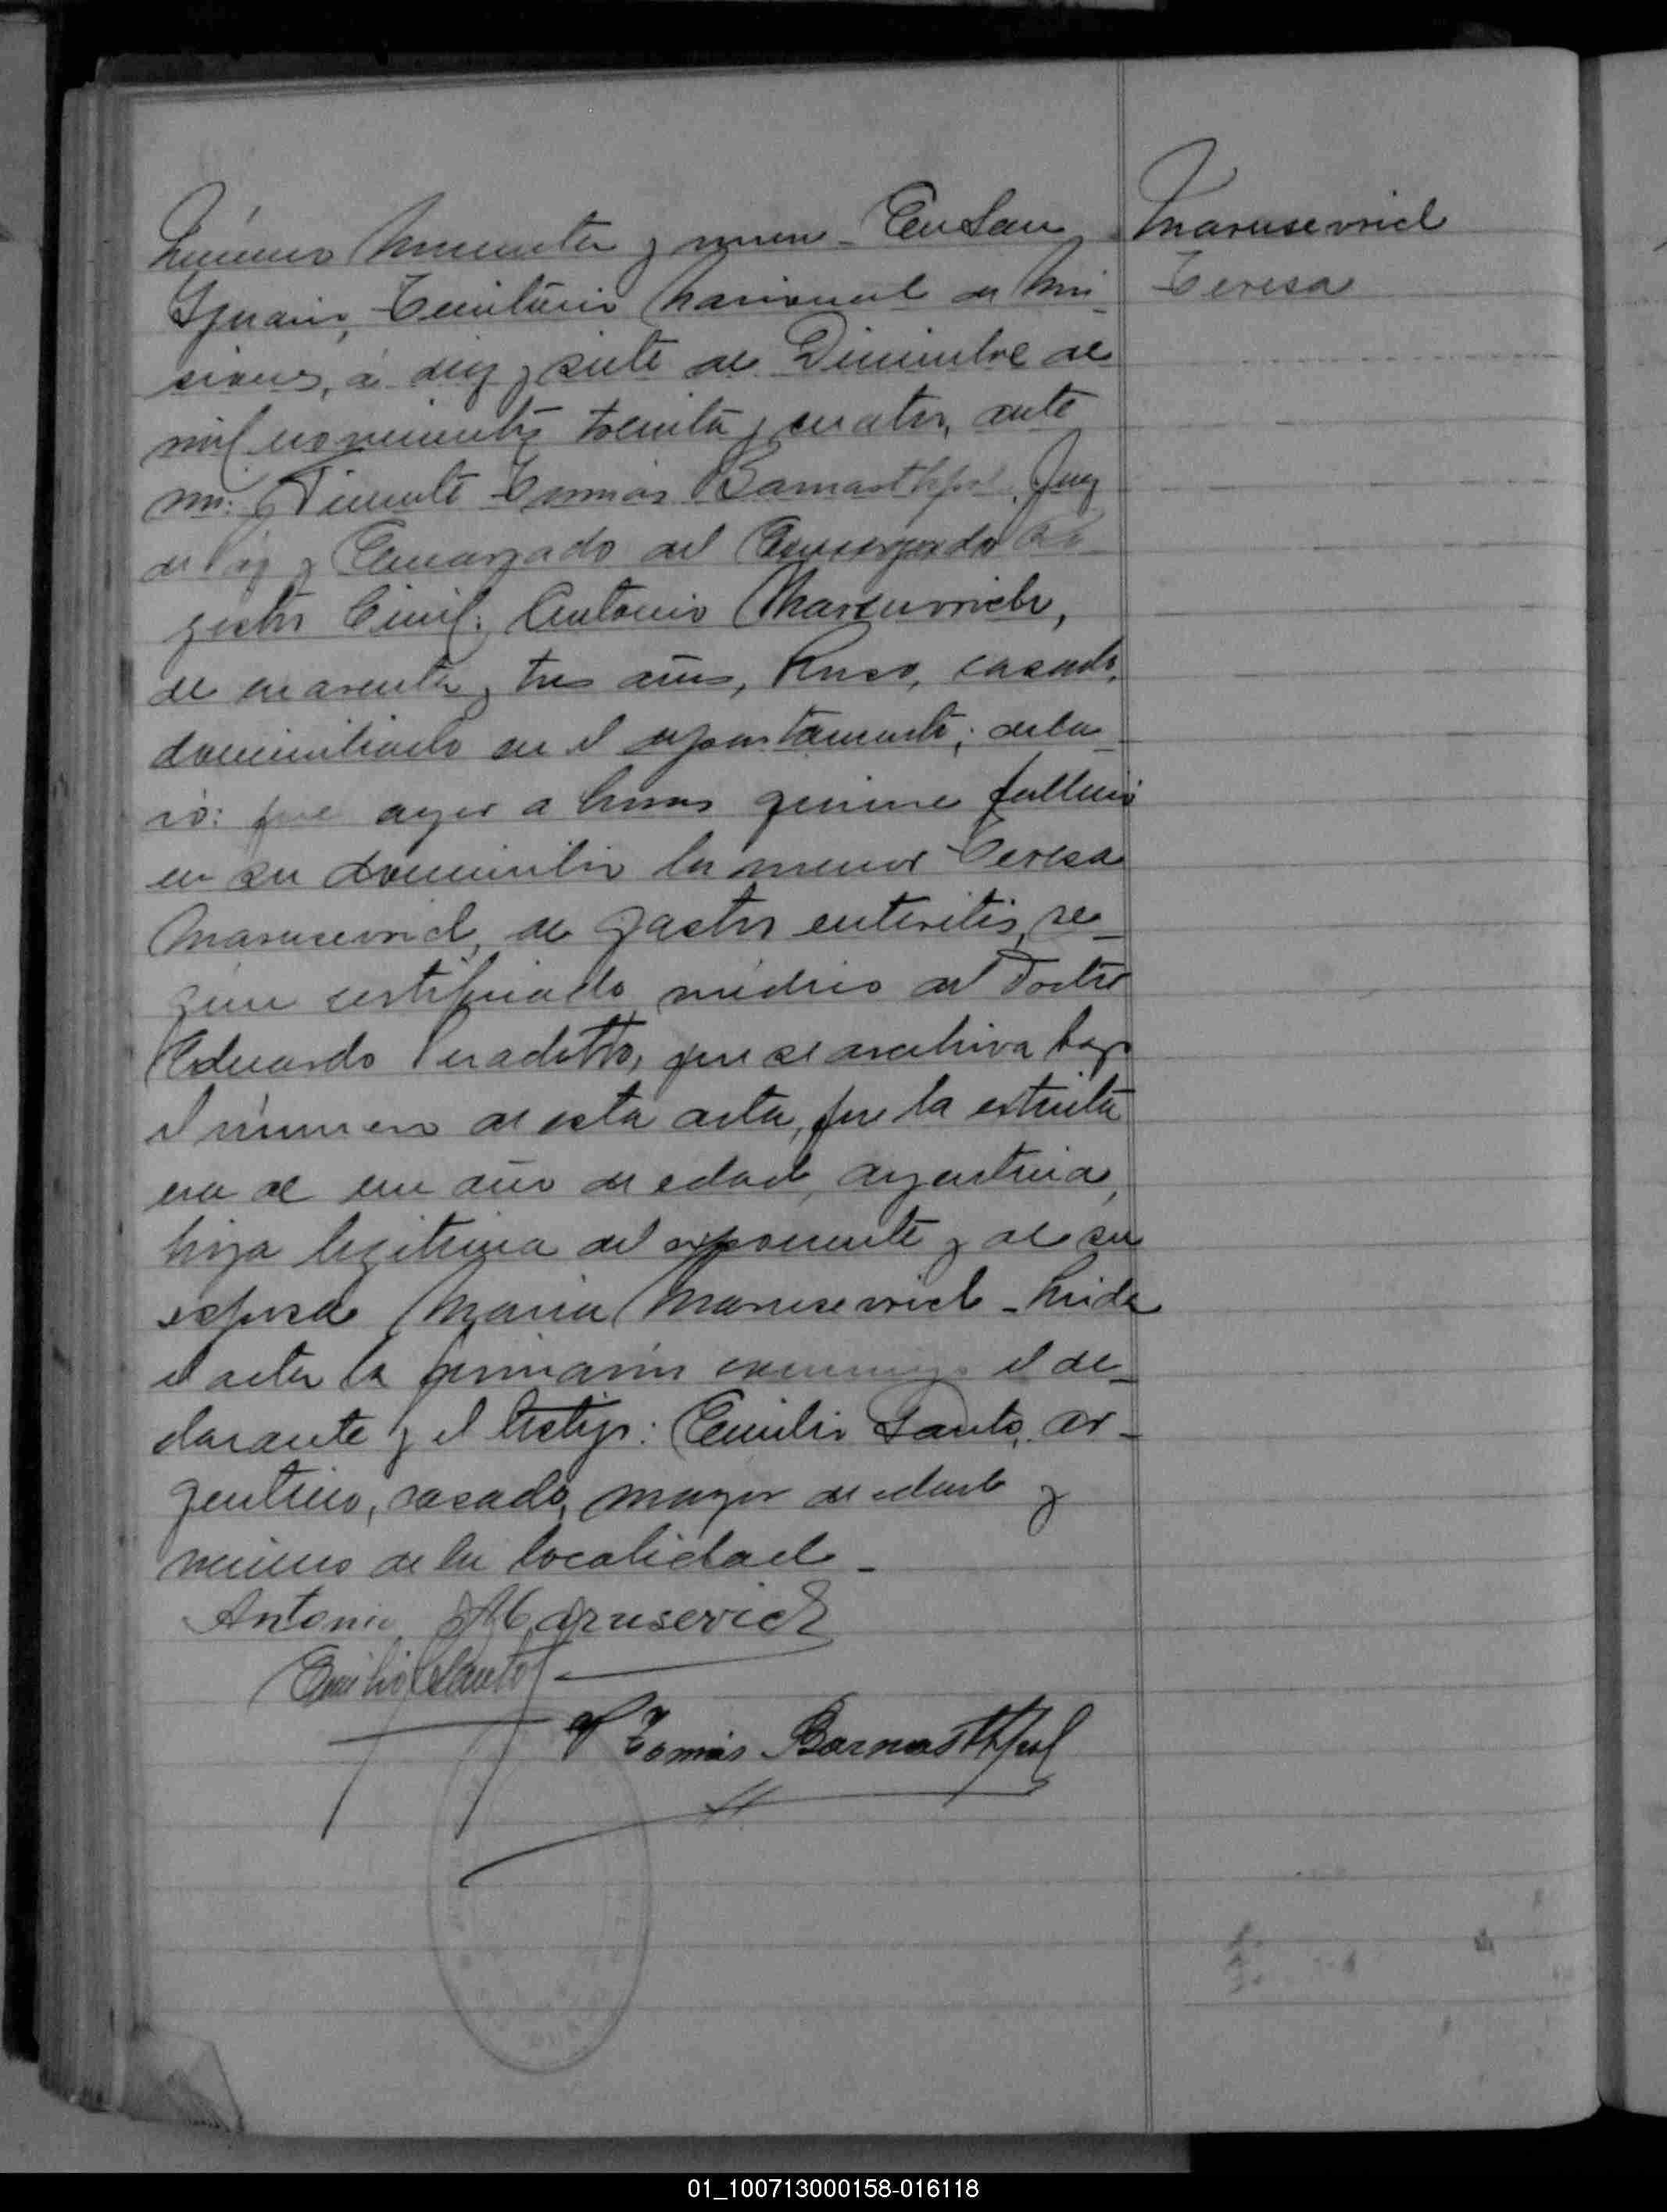 Número noventa y nueve - En San
Ignacio, Territorio Nacional de Mi-
siones, á diez y siete de Diciembre de
mil novecientos treinta y cuatro, ante
mi: Vicente Tomás Barnasthpol, Juez
de Paz y Encargado del Encargado Re-
gistro Civil: Antonio Marusevich,
de cuarenta y tres años, Ruso, casado,
domiciliado en el departamento; decla-
ró: que ayer a horas quince falleció
en su domicilio la menor Teresa
Marusevich, de gastro enteritis, se-
gún certificado médico del Doctor
Eduardo que se archiva bajo
el número de esta acta, que la extinta
era de un año de edad, argentina,
hija legítima del exponente y de su
esposa María Marusevich - Leida
el acta la firmaron conmigo el de-
clarante y el testigo: Emilio Santo, ar-
gentino, casado, mayor de edad y
vecino de la localidad -
Antonio Marusevich
Emilio Santo
V Tomás Barnasthpol
Marusevich
Teresa
01_100713000158-016118